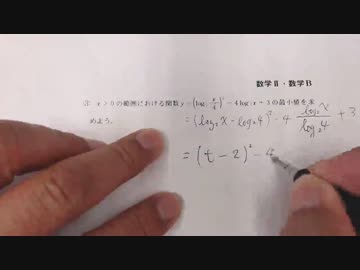 数学Ⅱ・数学B
③ x > 0 の範囲における関数 y = (log₂ x/4)² − 4 log₄ x + 3 の最小値を求
めよう。
= (log₂x − log₂4)² − 4 log₂x/log₂4 + 3
= (t − 2)² − 4